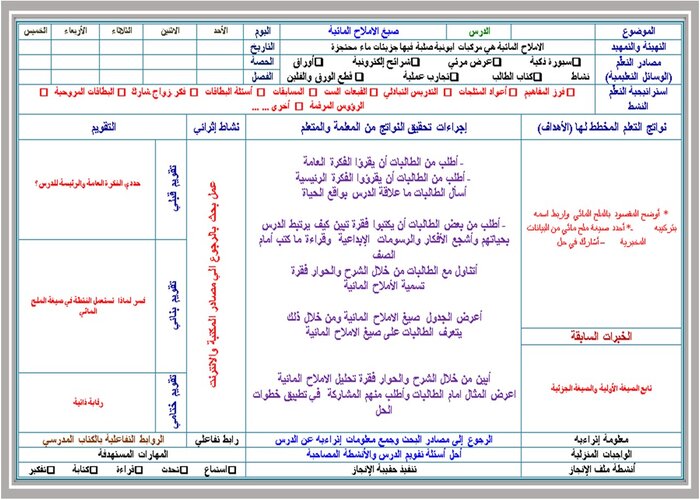 الموضوع الدرس صيغ الاملاح المائية اليوم الأحد الاثنين الثلاثاء الأربعاء الخميس
التهيئة والتمهيد الاملاح المائية هي مركبات ايونية صلبة فيها جزيئات ماء محتجزة التاريخ
مصادر التعلم سبورة ذكية عرض مرئي شرائح إلكترونية أوراق الحصة
(الوسائل التعليمية) نشاط كتاب الطالب تجارب عملية قطع الورق والفلين الفصل
استراتيجية التعلم فرز المفاهيم أعواد المثلجات التدريس التبادلي القبعات الست المسابقات أسئلة البطاقات فكر زواج شارك البطاقات المروحية
النشط الرؤوس المرقمة أخرى ... ...
نواتج التعلم المخطط لها (الأهداف) إجراءات تحقيق النواتج من المعلمة والمتعلم نشاط إثرائي التقويم
* أوضح المقصود بالملح المائي واربط اسمه
بتركيبه -* أحدد صيغة ملح مائي من البيانات
المخبرية – أشارك في حل
الخبرات السابقة
تابع الصيغة الأولية والصيغة الجزئية
- أطلب من الطالبات أن يقرؤا الفكرة العامة
- أطلب من الطالبات أن يقرؤوا الفكرة الرئيسية
أسأل الطالبات ما علاقة الدرس بواقع الحياة
- أطلب من بعض الطالبات أن يكتبوا فقرة تبين كيف يرتبط الدرس
بحياتهم وأشجع الأفكار والرسومات الإبداعية وقراءة ما كتب أمام
الصف
أتناول مع الطالبات من خلال الشرح والحوار فقرة
تسمية الأملاح المائية
أعرض الجدول صيغ الاملاح المائية ومن خلال ذلك
يتعرف الطالبات على صيغ الاملاح المائية
أبين من خلال الشرح والحوار فقرة تحليل الاملاح المائية
اعرض المثال امام الطالبات وأطلب منهم المشاركة في تطبيق خطوات
الحل
عمل بحث بالرجوع الى مصادر المكتبة والانترنت
تقويم قبلي
حددي الفكرة العامة والرئيسة للدرس؟
تقويم بنائي
فسر لماذا تستعمل النقطة في صيغة الملح
المائي
تقويم ختامي
رقابة ذاتية
معلومة إثراءيه الرجوع إلى مصادر البحث وجمع معلومات إثراءيه عن الدرس رابط تفاعلي الروابط التفاعلية بالكتاب المدرسي
الواجبات المنزلية أحل أسئلة تقويم الدرس والأنشطة المصاحبة المهارات المستهدفة
أنشطة ملف الإنجاز تنفيذ حقيبة الإنجاز استماع تحدث قراءة كتابة تفكير